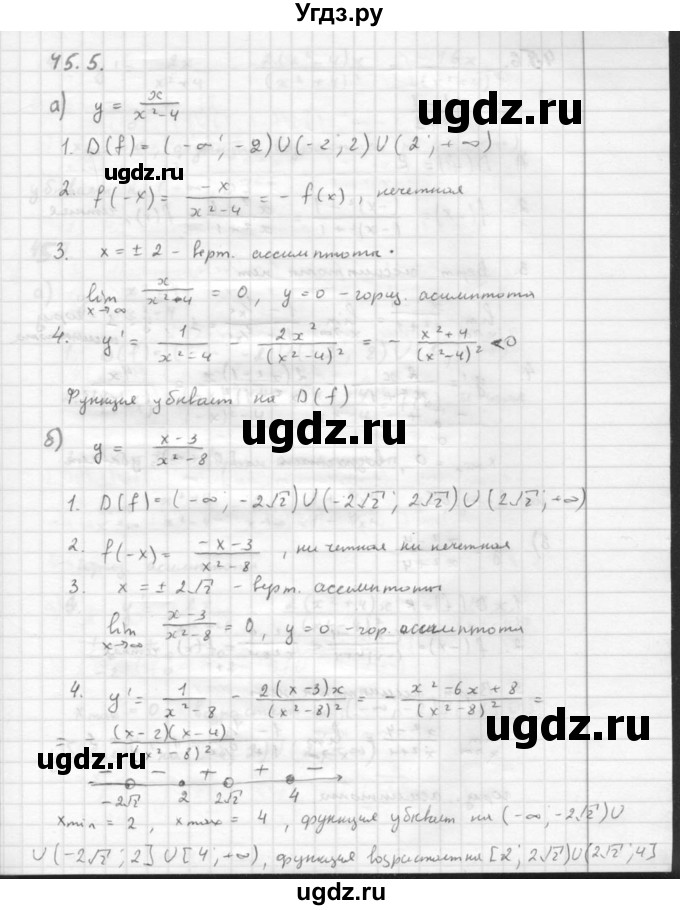 Угдз.ру
45.5.
а) y = x/(x²-4)
ugdz.ru
1. D(f) = (-∞; -2)∪(-2; 2)∪(2; +∞)
ugdz.ru
2. f(-x) = -x/(x²-4) = - f(x), нечетная
3. x = ± 2 - верт. ассимптота.
lim x→∞ x/(x²-4) = 0, y=0 - гориз. асимптота
ugdz.ru
4. y' = 1/(x²-4) - 2x²/(x²-4)² = - (x²+4)/(x²-4)² < 0
Функция убывает на D(f)
ugdz.ru
б) y = (x-3)/(x²-8)
1. D(f) = (-∞; -2√2)∪(-2√2; 2√2)∪(2√2; +∞)
ugdz.ru
2. f(-x) = (-x-3)/(x²-8), ни четная ни нечетная
3. x = ± 2√2 - верт. ассимптоты
lim x→∞ (x-3)/(x²-8) = 0, y=0 - гор. асимптота
ugdz.ru
4. y' = 1/(x²-8) - 2(x-3)x/(x²-8)² = - (x²-6x+8)/(x²-8)² =
= - (x-2)(x-4)/(x²-8)²
ugdz.ru
- - + + -
-2√2 2 2√2 4
xmin = 2, xmax = 4, функция убывает на (-∞; -2√2)∪
ugdz.ru
∪(-2√2; 2]∪[4; +∞), функция возрастает на [2; 2√2)∪(2√2; 4]
ugdz.ru